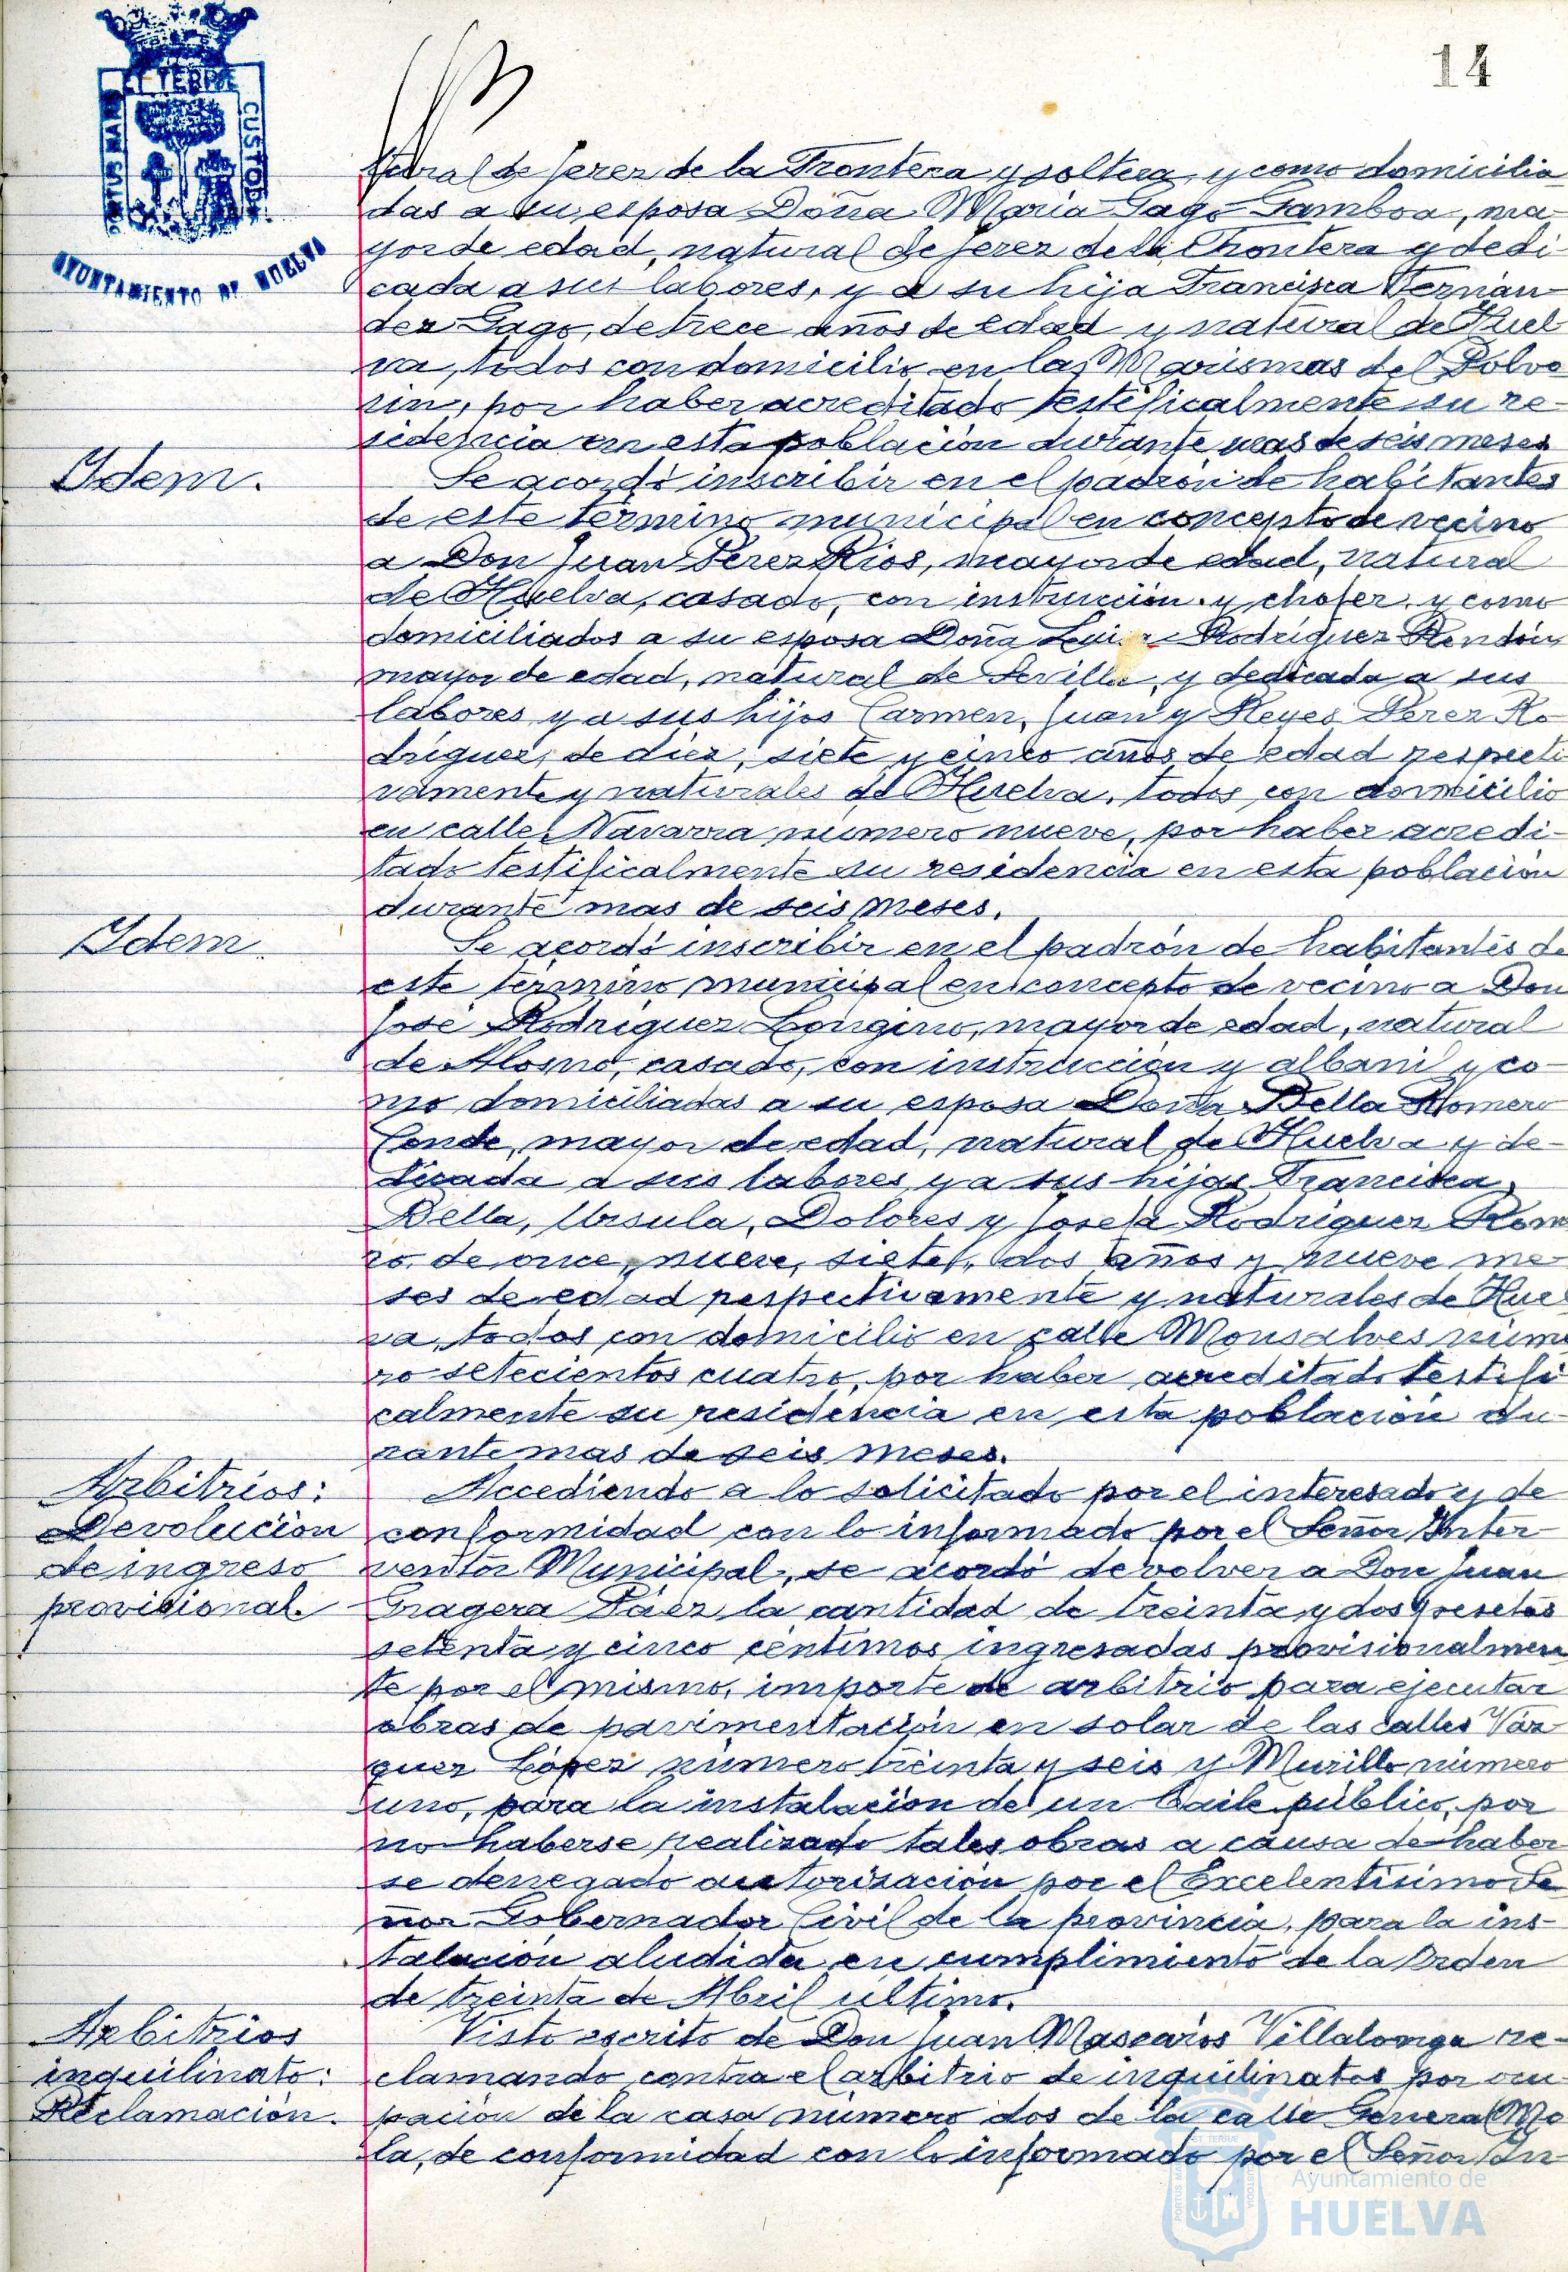 14
PORTUS MARIS
ET TERRE
CUSTODIA
AYUNTAMIENTO DE HUELVA
tural de Jerez de la Frontera y soltera, y como domicilia
das a su esposa Doña Maria Gago Gamboa, ma-
yor de edad, natural de Jerez de la Frontera y dedi-
cada a sus labores, y a su hija Francisca Fernán-
dez Gago, de trece años de edad y natural de Huel
va, todos con domicilio en las Marismas del Polvo
rin, por haber acreditado testificalmente su re-
sidencia en esta población durante mas de seis meses
Idem.
Se acordó inscribir en el padrón de habitantes
de este término municipal en concepto de vecino
a Don Juan Perez Rios, mayor de edad, natural
de Huelva, casado, con instrucción y chofer y como
domiciliados a su esposa Doña Rodríguez Rendón,
mayor de edad, natural de Sevilla, y dedicada a sus
labores y a sus hijos Carmen, Juan y Reyes Perez Ro-
dríguez, de diez, siete y cinco años de edad respecti
vamente y naturales de Huelva, todos con domicilio
en calle Navarra número nueve, por haber acredi-
tado testificalmente su residencia en esta población
durante mas de seis meses.
Idem.
Se acordó inscribir en el padrón de habitantes de
este término municipal en concepto de vecino a Don
José Rodríguez Longino, mayor de edad, natural
de Alosno, casado, con instrucción y albañil y co-
mo domiciliadas a su esposa Doña Bella Romero
Conde, mayor de edad, natural de Huelva y de-
dicada a sus labores, y a sus hijas Francisca,
Bella, Ursula, Dolores y Josefa Rodríguez Rome
ro, de once, nueve, siete, dos años y nueve me-
ses de edad respectivamente y naturales de Huel
va, todos con domicilio en calle Monsalves núme
ro setecientos cuatro, por haber acreditado testifi
calmente su residencia en esta población du-
rante mas de seis meses.
Arbitrios:
Devolución
de ingreso
provisional.
Accediendo a lo solicitado por el interesado y de
conformidad con lo informado por el Señor Inter
ventor Municipal, se acordó devolver a Don Juan
Gragera Páez la cantidad de treinta y dos pesetas
setenta y cinco céntimos ingresadas provisionalmen
te por el mismo, importe de arbitrio para ejecutar
obras de pavimentación en solar de las calles Váz
quez López número treinta y seis y Murillo número
uno, para la instalación de un baile público, por
no haberse realizado tales obras a causa de haber
se denegado autorización por el Excelentísimo Se
ñor Gobernador Civil de la provincia, para la ins-
talación aludida en cumplimiento de la Orden
de treinta de Abril último.
Arbitrios
inquilinato:
Reclamación.
Visto escrito de Don Juan Mascarós Villalonga re-
clamando contra el arbitrio de inquilinatos por ocu
pación de la casa número dos de la calle General Mo
la, de conformidad con lo informado por el Señor In-
Ayuntamiento de
HUELVA